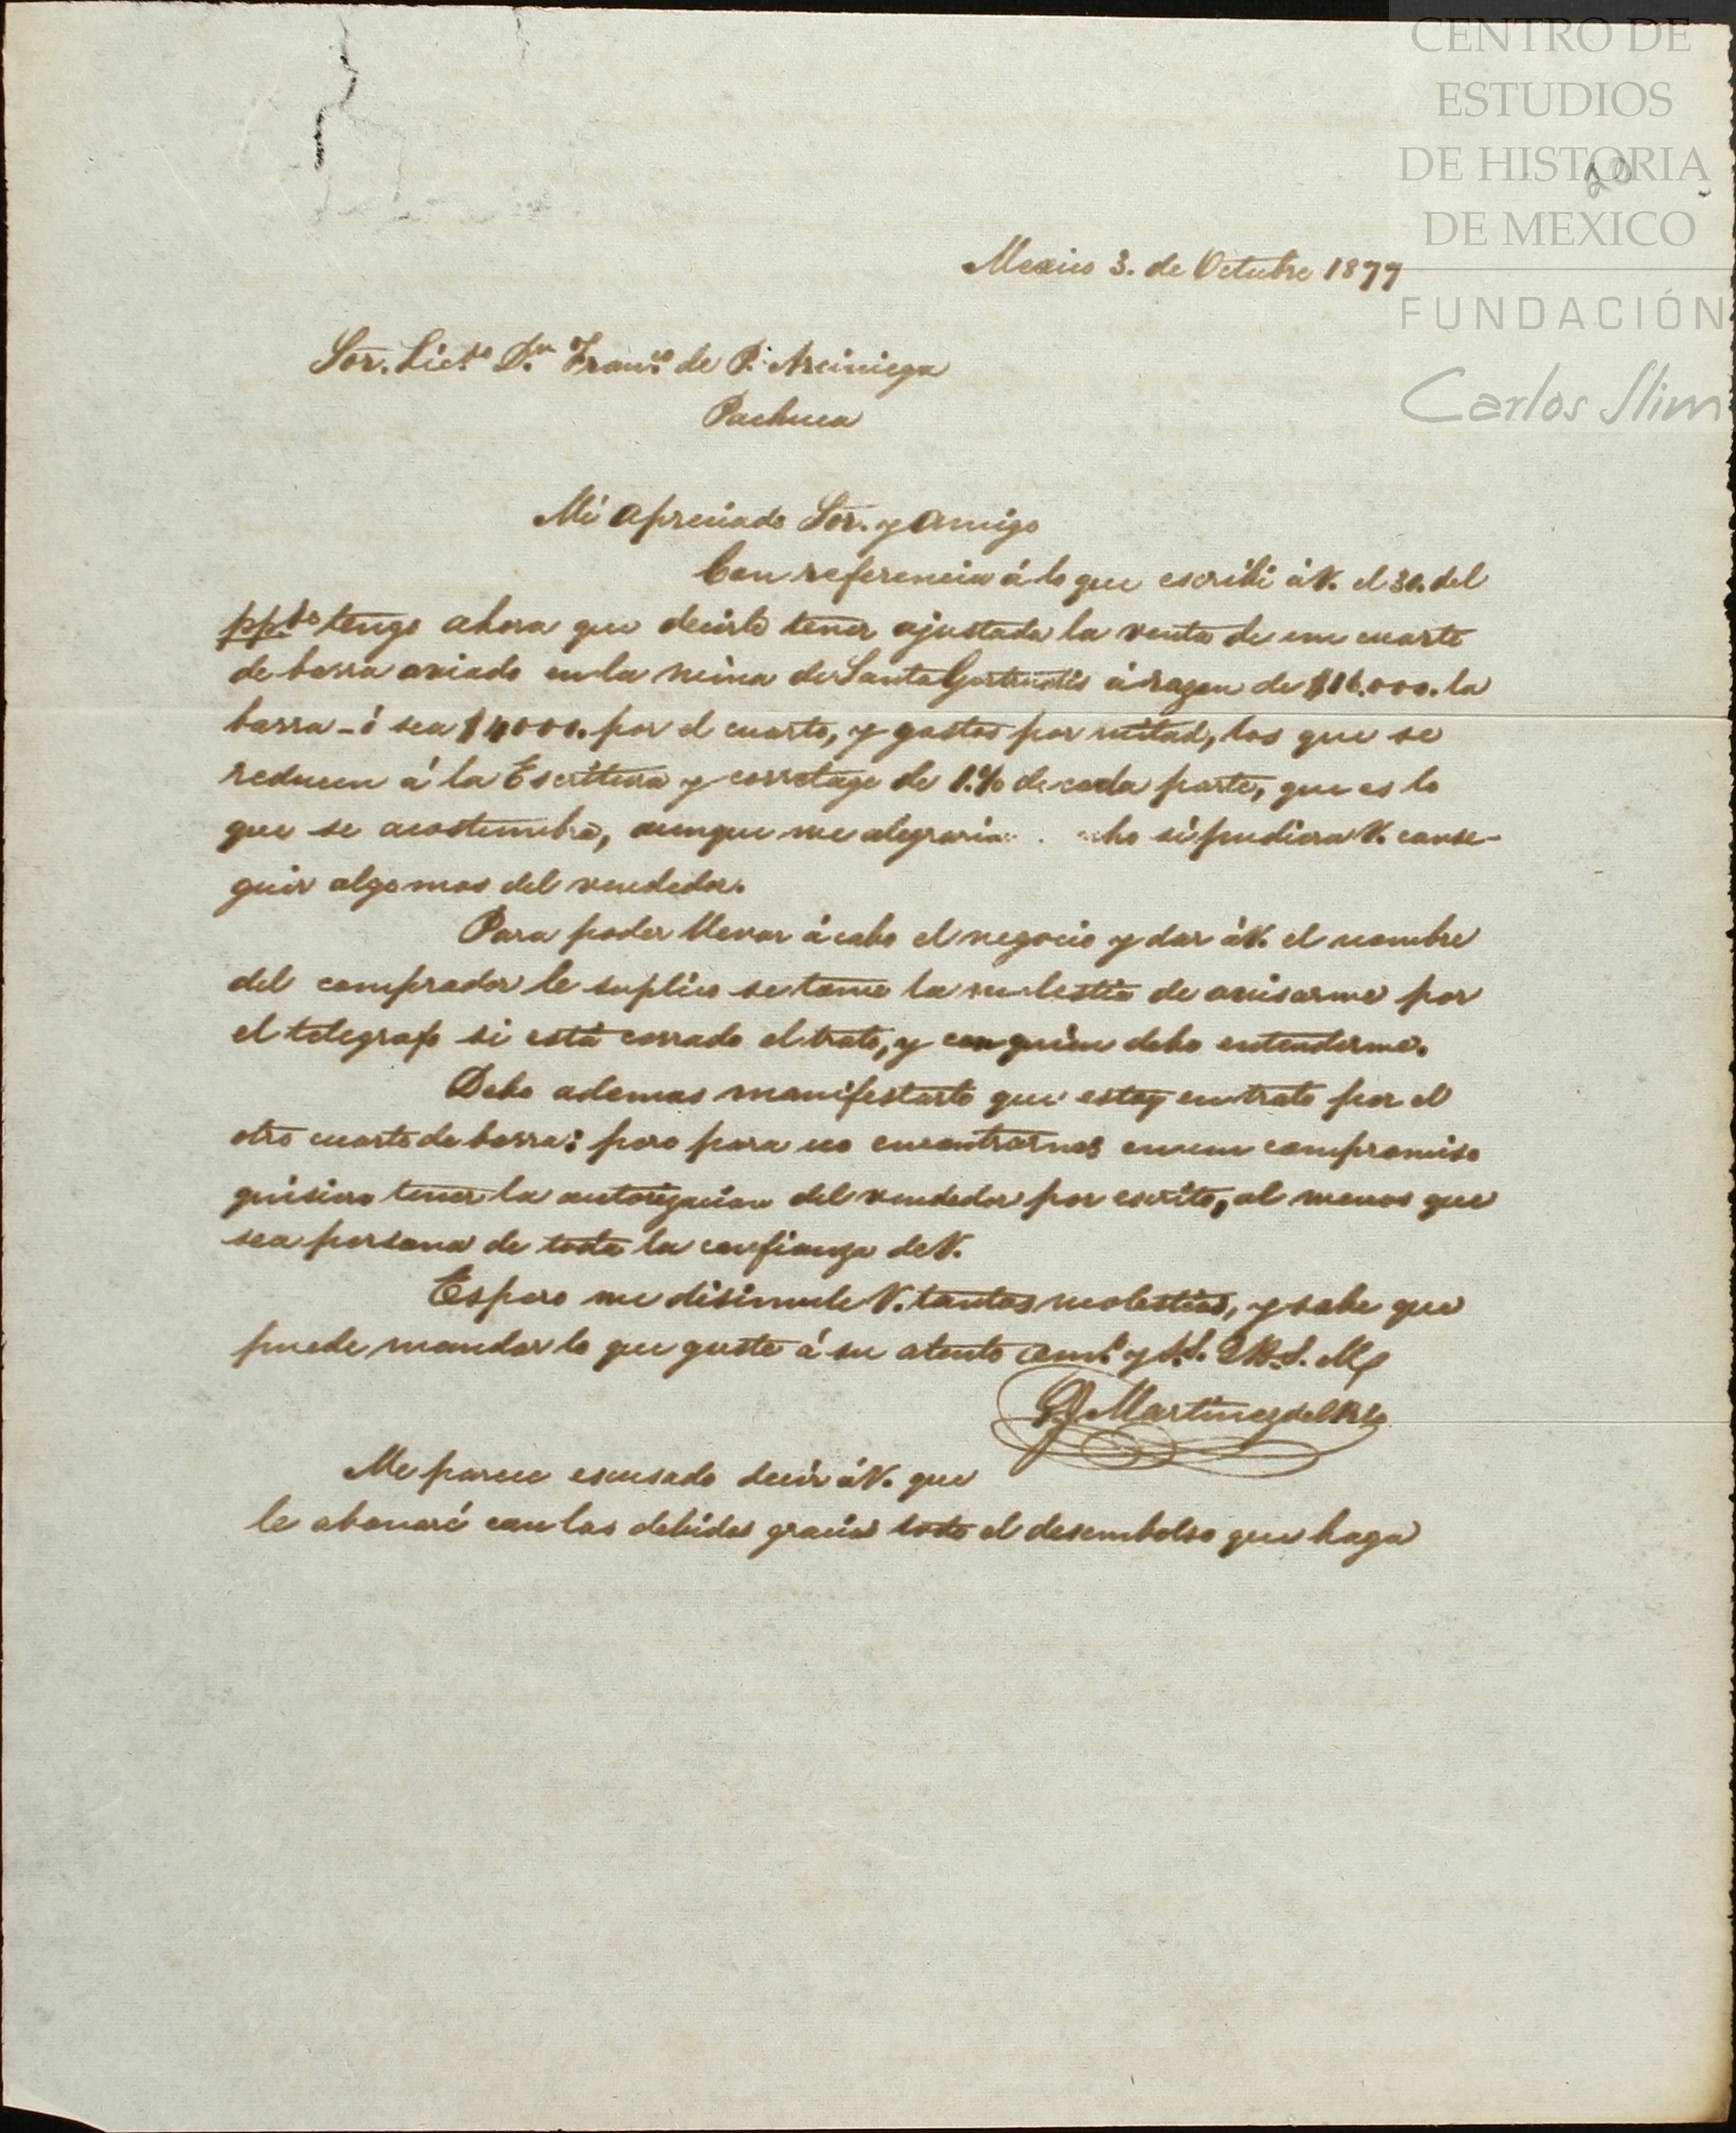 CENTRO DE
ESTUDIOS
DE HISTORIA
DE MEXICO
FUNDACIÓN
Carlos Slim
20
Mexico 3. de Octubre 1877
Sor. Licdo Dn Franco de P. Arciniega
Pachuca
Mi apreciado Sor. y amigo
Con referencia á lo que escribi á V. el 30. del
ppdo tengo ahora que decirle tener ajustada la venta de un cuarto
de barra aviado en la mina de Santa Gertrudis á razon de $16.000. la
barra - ó sea $4000. por el cuarto, y gastos por mitad, los que se
reducen á la Escritura y corretage de 1.% de cada parte, que es lo
que se acostumbra, aunque me alegraria cho si pudiera V. conse-
guir algo mas del vendedor.
Para poder llevar á cabo el negocio y dar á V. el nombre
del comprador le suplico se tome la molestia de avisarme por
el telegrafo si está cerrado el trato, y con quien debo entenderme.
Debo ademas manifestarle que estoy en trato por el
otro cuarto de barra; pero para no encontrarnos en un compromiso
quisiera tener la autorizacion del vendedor por escrito, al menos que
sea persona de toda la confianza de V.
Espero me disimule V. tantas molestias, y sabe que
puede mandar lo que guste á su atento amo. y S.S. Q.B.S.M.
Martinez del Rio
Me parece escusado decir á V. que
le abonaré con las debidas gracias todo el desembolso que haga